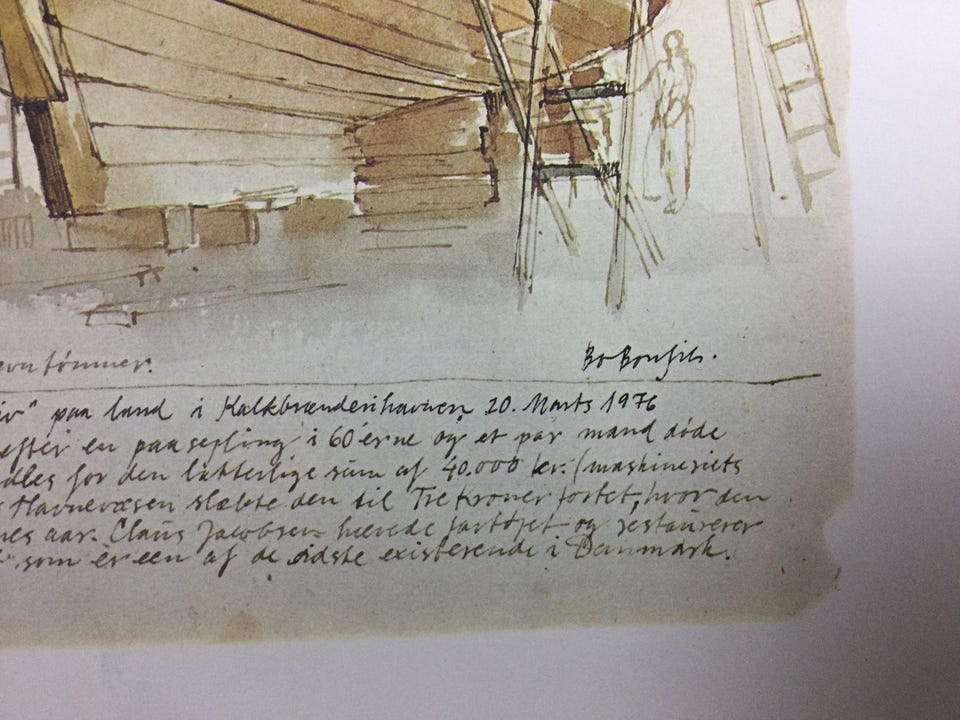 tømmer.
Bo Bonfils.
paa land i Kalkbrænderihavnen 20. Marts 1976
efter en paasejling i 60'erne og et par mand døde
for den latterlige sum af 40.000 kr. (maskineriets
Havnevæsen slæbte den til Tre Kroner fortet, hvor den
aar. Claus Jacobsen hævede fartøjet og restaurerer
som er een af de ældste existerende i Danmark.